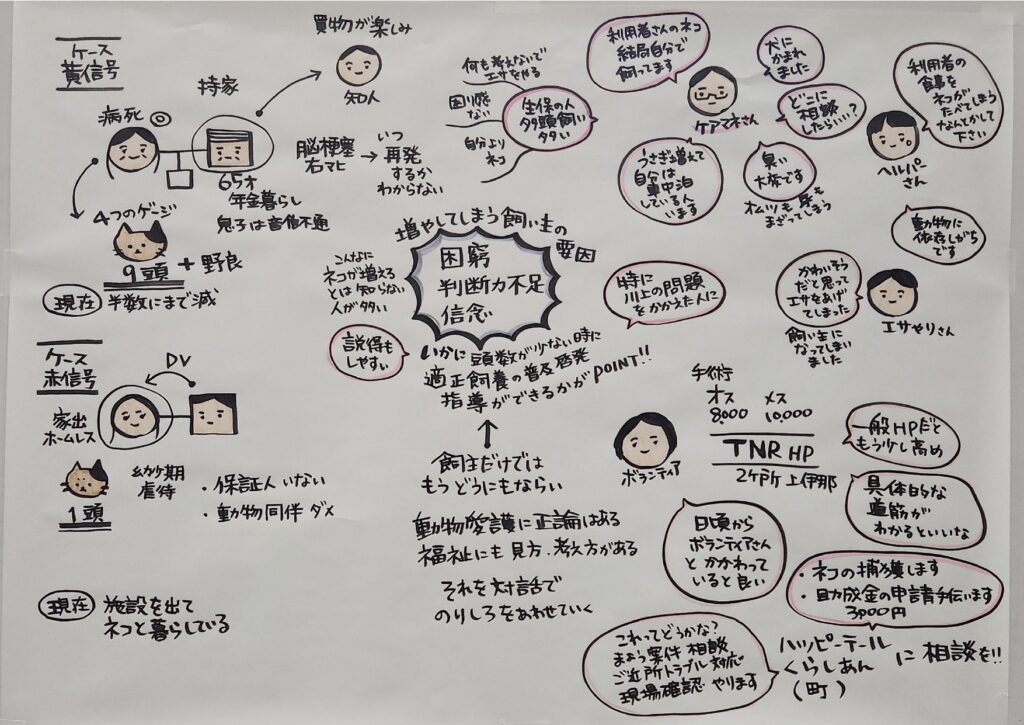 ケース
黄信号
病死
持家
買物が楽しみ
知人
65才
年金暮らし
息子は音信不通
脳梗塞
右マヒ
→
いつ
再発
するか
わからない
4つのゲージ
9頭 + 野良
現在
半数にまで減
何も考えないで
エサをやる
困り感
ない
自分より
ネコ
生保の人
多頭飼い
多い
利用者さんのネコ
結局自分で
飼ってます
ケアマネさん
犬に
かまれ
ました
どこに
相談
したらいい?
利用者の
食事を
ネコが
たべてしまう
なんとかして
下さい
ヘルパー
さん
うさぎ増えて
自分は
車中泊
している人
います
臭い
大変です
オムツも尿も
まざってしまう
動物に
依存しがち
です
かわいそう
だと思って
エサをあげ
てしまった
エサやりさん
飼い主に
なってしまい
ました
増やしてしまう飼い主の
要因
困窮
判断力不足
信念
こんなに
ネコが増える
とは知らない
人が多い
説得も
しやすい
特に
川上の問題
をかかえた人に
いかに頭数が少ない時に
適正飼養の普及啓発
指導ができるかがPOINT!!
↑
飼主だけでは
もうどうにもならい
動物愛護に正論はある
福祉にも見方・考え方がある
それを対話で
のりしろをあわせていく
ケース
赤信号
DV
家出
ホームレス
1頭
幼少期
虐待
・保証人いない
・動物同伴ダメ
現在
施設を出て
ネコと暮らしている
ボランティア
手術
オス メス
8.000 10,000
TNR HP
2ケ所 上伊那
一般HPだと
もう少し高め
具体的な
道筋が
わかるといいな
日頃から
ボランティアさん
とかかわって
いると良い
・ネコの捕獲します
・助成金の申請手伝います
3,000円
これってどうかな?
まよう案件相談
ご近所トラブル対応
現場確認やります
ハッピーテール
くらしあん
(町)
に相談を!!